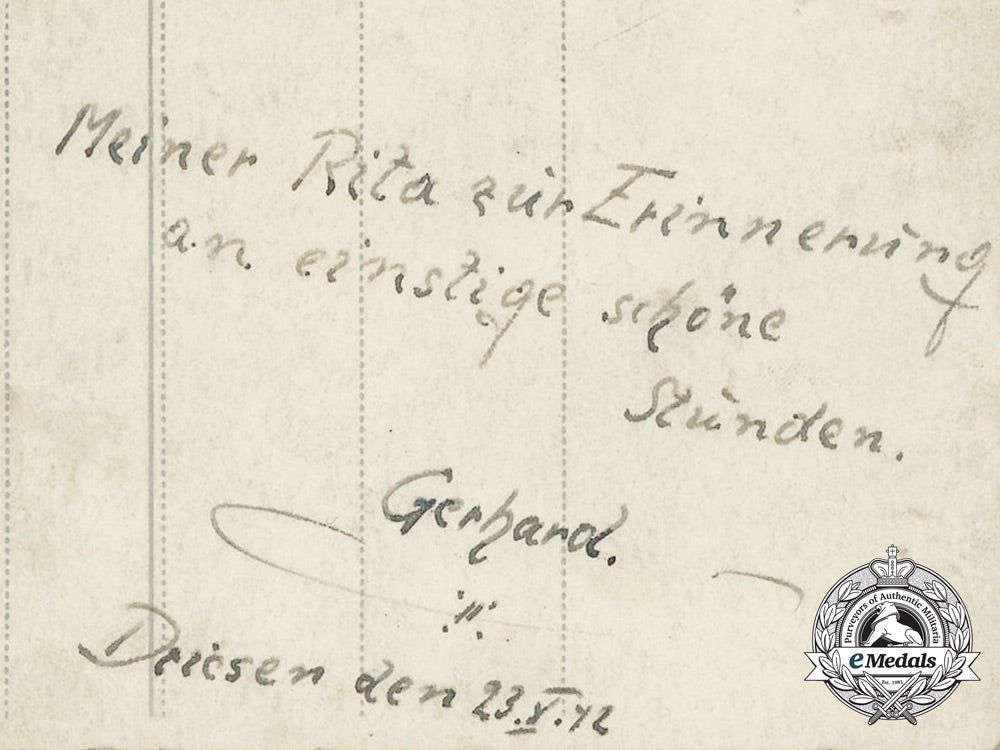 Meiner Rita zur Erinnerung
an einstige schöne
Stunden.
Gerhard.
Driesen den 23.V.42
Purveyors of Authentic Militaria
eMedals
Est. 1981